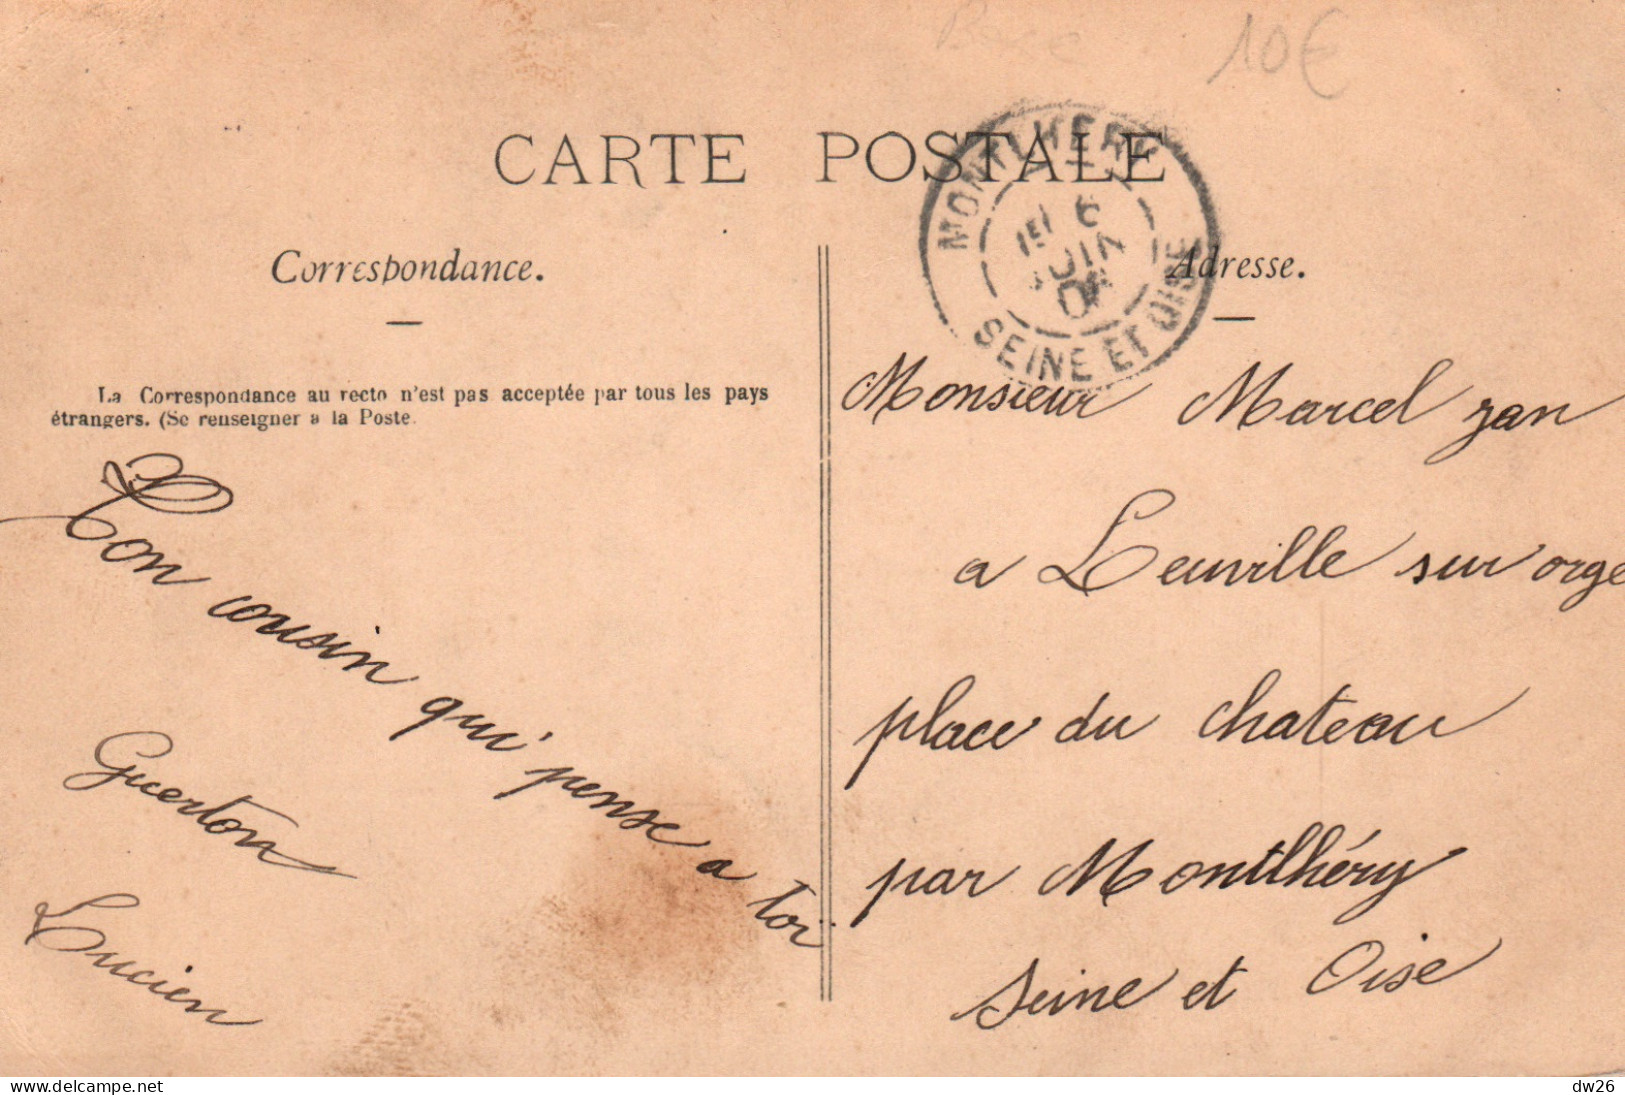 10€
CARTE POSTALE
MONTLHERY
6
SEINE ET OISE
Correspondance.
Adresse.
La Correspondance au recto n'est pas acceptée par tous les pays
étrangers. (Se renseigner a la Poste.
Ton cousin qui pense a toi
Guerton
Lucien
Monsieur Marcel Jan
a Leuville sur orge
place du chateau
par Montlhéry
Seine et Oise
delcampe.net
dw26